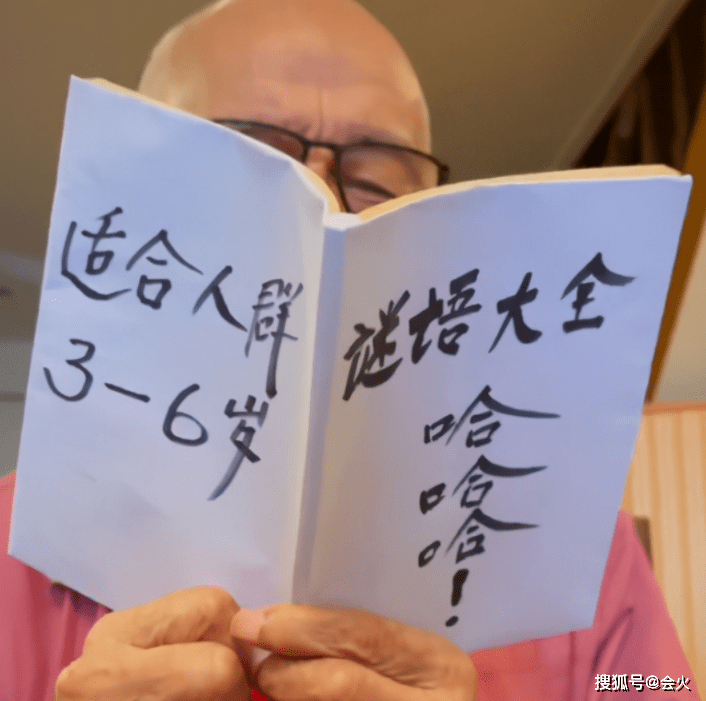 适合人群
3-6岁
谜语大全
哈
哈
哈
!
搜狐号@会火